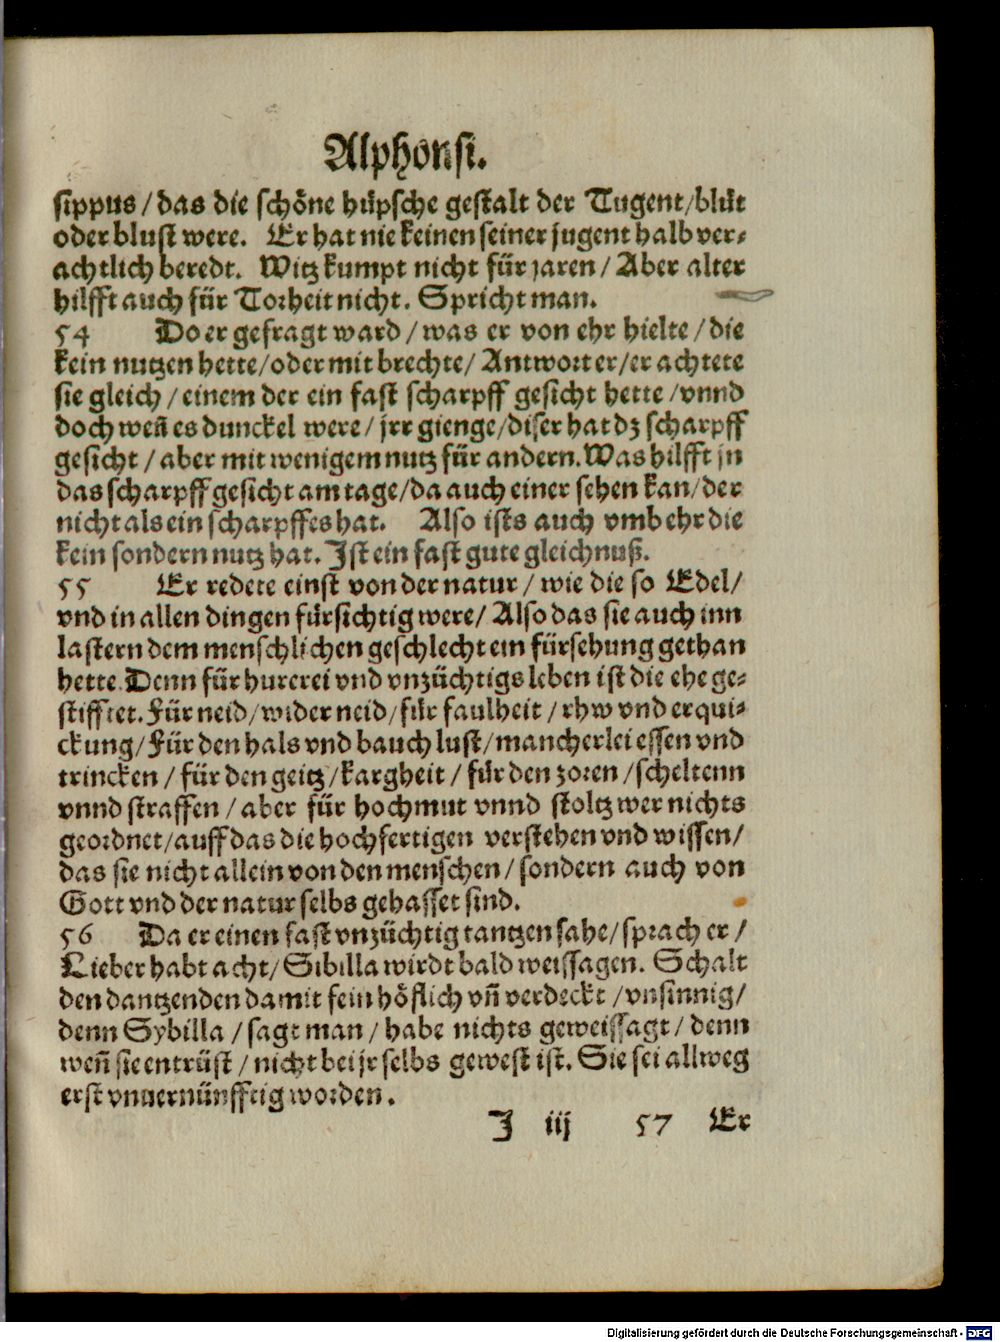 Alphonsi.
sippus / das die schöne hüpsche gestalt der Tugent/blüt
oder blust were. Er hat nie keinen seiner jugent halb ver⸗
achtlich beredt. Witz kumpt nicht für jaren / Aber alter
hilfft auch für Torheit nicht. Spricht man.
54 Do er gefragt ward / was er von ehr hielte / die
kein nutzen hette/oder mit brechte/ Antwort er/er achtete
sie gleich / einem der ein fast scharpff gesicht hette /vnnd
doch weñ es dunckel were/ jrr gienge/diser hat dz scharpff
gesicht / aber mit wenigem nutz für andern. Was hilfft jn
das scharpff gesicht am tage/da auch einer sehen kan/der
nicht als ein scharpffes hat. Also ists auch vmb ehr die
kein sondern nutz hat. Ist ein fast gute gleichnuß.
55 Er redete einst von der natur / wie die so Edel/
vnd in allen dingen fürsichtig were/ Also das sie auch inn
lastern dem menschlichen geschlecht ein fürsehung gethan
hette. Denn für hurerei vnd vnzüchtigs leben ist die ehe ge⸗
stifftet. Für neid/wider neid/für faulheit / rhw vnd erqui⸗
ckung/Für den hals vnd bauch lust/mancherlei essen vnd
trincken / für den geitz/kargheit / für den zoren /scheltenn
vnnd straffen / aber für hochmut vnnd stoltz wer nichts
geordnet/auff das die hochfertigen verstehen vnd wissen/
das sie nicht allein von den menschen / sondern auch von
Gott vnd der natur selbs gehasset sind.
56 Da er einen fast vnzüchtig tantzen sahe/sprach er /
Lieber habt acht/ Sibilla wirdt bald weissagen. Schalt
den dantzenden damit fein höflich vñ verdeckt /vnsinnig/
denn Sybilla / sagt man / habe nichts geweissagt / denn
weñ sie entrüst / nicht bei jr selbs gewest ist. Sie sei allweg
erst vnuernünfftig worden.
J iij 57 Er
Digitalisierung gefördert durch die Deutsche Forschungsgemeinschaft - DFG